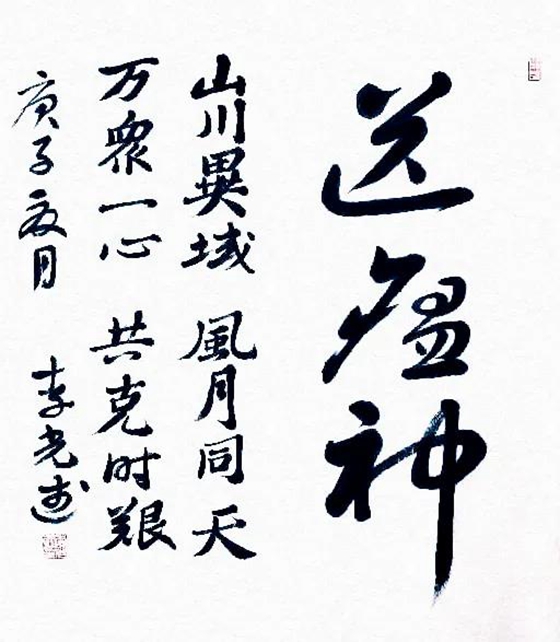 送瘟神
山川異域 風月同天
万衆一心 共克时艱
庚子夏月 李光